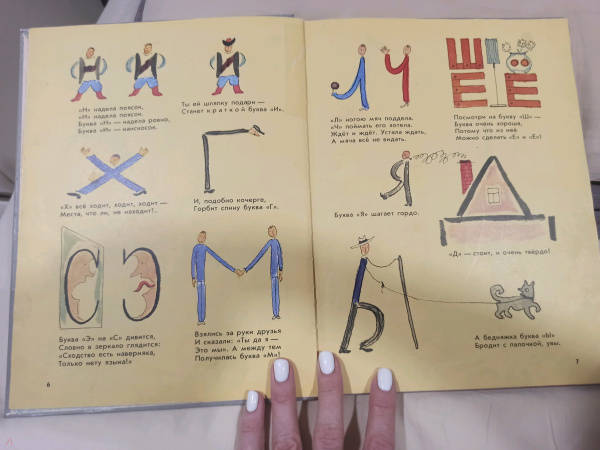 «Н» надела поясок,
«И» надела поясок.
Буква «Н» — надела ровно,
Буква «И» — наискосок.
Ты ей шляпку подари —
Станет краткой буква «И».
«Х» всё ходит, ходит, ходит —
Места, что ли, не находит!..
И, подобно кочерге,
Горбит спину буква «Г».
Буква «Э» на «С» дивится,
Словно в зеркало глядится:
«Сходство есть наверняка,
Только нету языка!»
Взялись за руки друзья
И сказали: «Ты да я —
Это мы». А между тем
Получилась буква «М»!
6
Л Ч
Ш
Е Е
«Л» ногою мяч поддела.
«Ч» поймать его хотела.
Ждёт и ждёт. Устала ждать,
А мяча всё не видать.
Посмотри на букву «Ш» —
Буква очень хороша,
Потому что из неё
Можно сделать «Е» и «Ё»!
Я
Буква «Я» шагает гордо.
«Д» — стоит, и очень твёрдо!
Х
Г
С Э
М
Ы
А бедняжка буква «Ы»
Бродит с палочкой, увы.
7